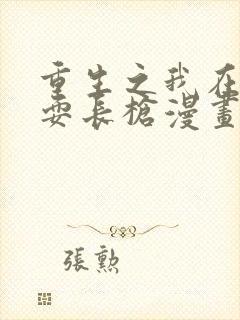 重生之我在
耍長槍漫畫
張勲